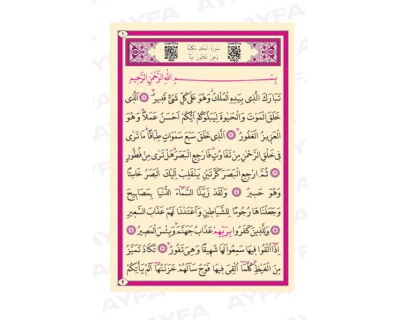 ١
سُورَةُ الْمُلْكِ مَكِّيَّةٌ
وَهِيَ ثَلَاثُونَ اٰيَةً
بِسْمِ اللّٰهِ الرَّحْمٰنِ الرَّحِيمِ
تَبَارَكَ الَّذ۪ي بِيَدِهِ الْمُلْكُۘ وَهُوَ عَلٰى كُلِّ شَيْءٍ قَد۪يرٌۙ ﴿١﴾ اَلَّذ۪ي
خَلَقَ الْمَوْتَ وَالْحَيٰوةَ لِيَبْلُوَكُمْ اَيُّكُمْ اَحْسَنُ عَمَلًاۜ وَهُوَ
الْعَز۪يزُ الْغَفُورُۙ ﴿٢﴾ اَلَّذ۪ي خَلَقَ سَبْعَ سَمٰوَاتٍ طِبَاقًاۜ مَا تَرٰى
ف۪ي خَلْقِ الرَّحْمٰنِ مِنْ تَفَاوُتٍۜ فَارْجِعِ الْبَصَرَۙ هَلْ تَرٰى مِنْ فُطُورٍ
﴿٣﴾ ثُمَّ ارْجِعِ الْبَصَرَ كَرَّتَيْنِ يَنْقَلِبْ اِلَيْكَ الْبَصَرُ خَاسِئًا
وَهُوَ حَس۪يرٌ ﴿٤﴾ وَلَقَدْ زَيَّنَّا السَّمَٓاءَ الدُّنْيَا بِمَصَاب۪يحَ
وَجَعَلْنَاهَا رُجُومًا لِلشَّيَاط۪ينِ وَاَعْتَدْنَا لَهُمْ عَذَابَ السَّع۪يرِ
﴿٥﴾ وَلِلَّذ۪ينَ كَفَرُوا بِرَبِّهِمْ عَذَابُ جَهَنَّمَۜ وَبِئْسَ الْمَص۪يرُ ﴿٦﴾
اِذَٓا اُلْقُوا ف۪يهَا سَمِعُوا لَهَا شَه۪يقًا وَهِيَ تَفُورُۙ ﴿٧﴾ تَكَادُ تَمَيَّزُ
مِنَ الْغَيْظِۜ كُلَّمَٓا اُلْقِيَ ف۪يهَا فَوْجٌ سَاَلَهُمْ خَزَنَتُهَٓا اَلَمْ يَأْتِكُمْ
AYFA